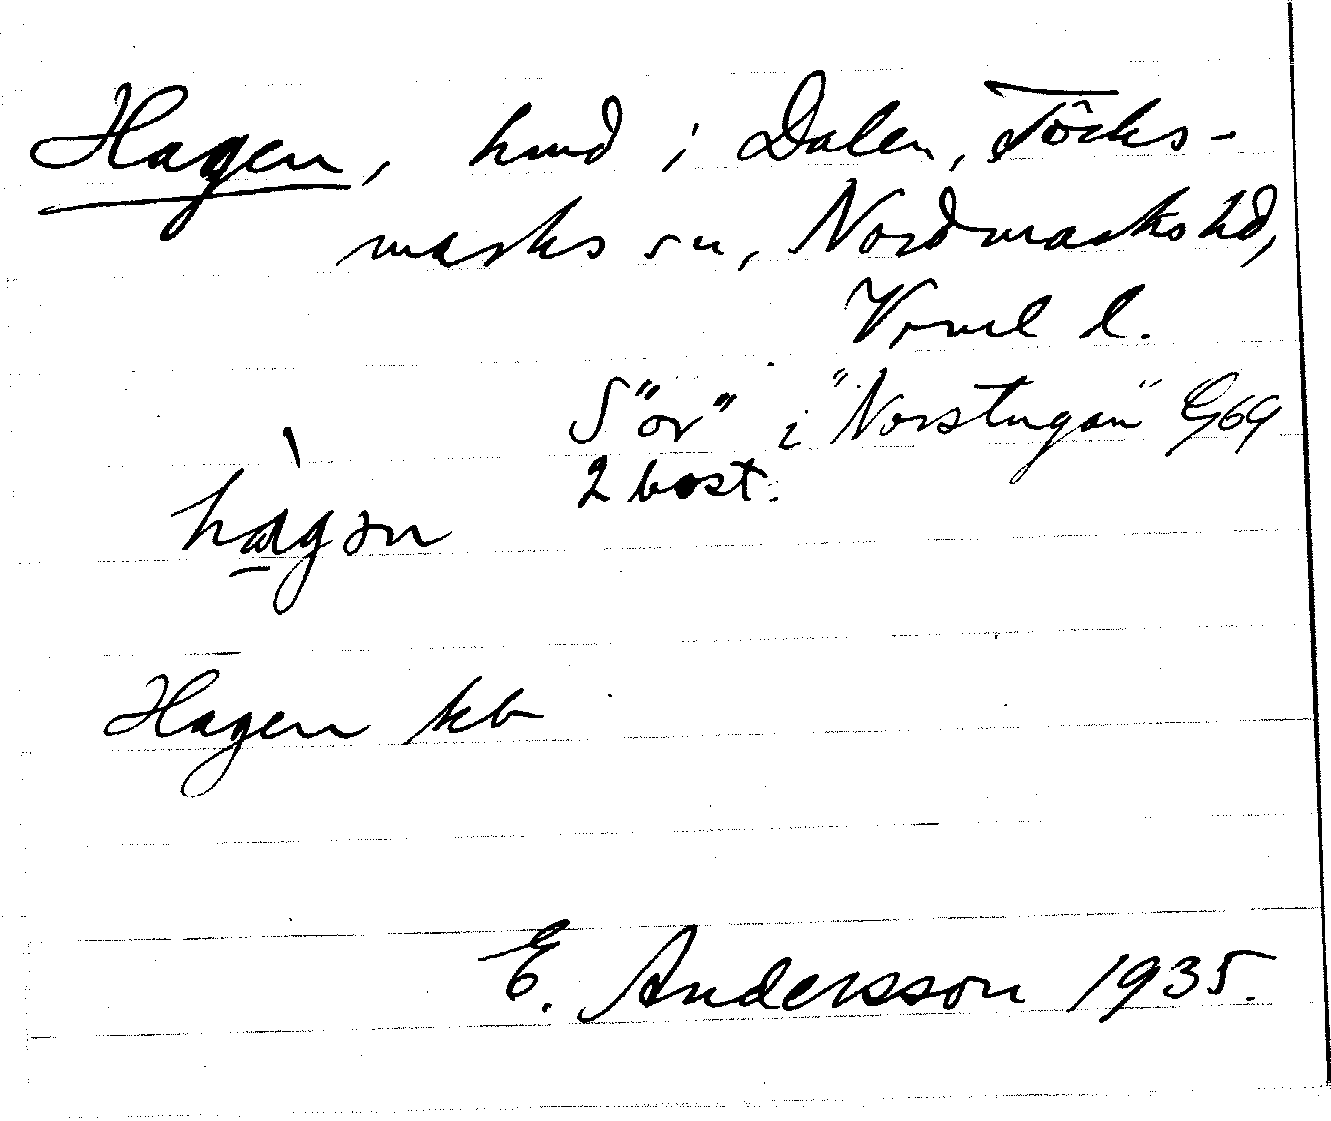 Hagen, hmd i Dalen, Töcks-
marks sn, Nordmarks hd,
Vrml l.
S "or" i "Norstugan" G69
2 bost.
hagən
Hagen kb
E. Andersson 1935.